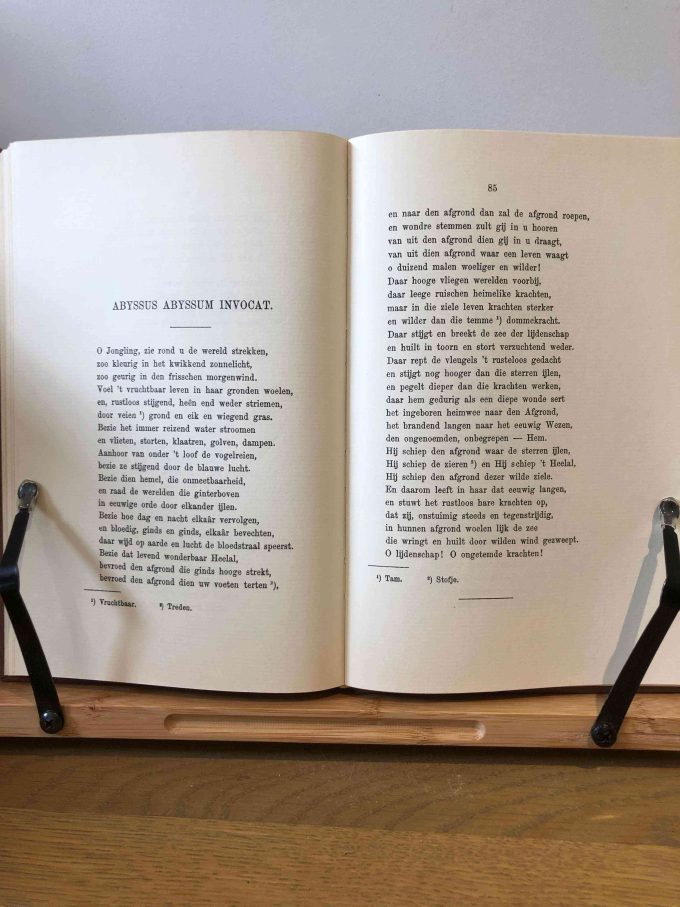 ABYSSUS ABYSSUM INVOCAT.
O Jongling, zie rond u de wereld strekken,
zoo kleurig in het kwikkend zonnelicht,
zoo geurig in den frisschen morgenwind.
Voel 't vruchtbaar leven in haar gronden woelen,
en, rustloos stijgend, heên end weder striemen,
door veien ¹) grond en eik en wiegend gras.
Bezie het immer reizend water stroomen
en vlieten, storten, klaatren, golven, dampen.
Aanhoor van onder 't loof de vogelreien,
bezie ze stijgend door de blauwe lucht.
Bezie dien hemel, die onmeetbaarheid,
en raad de werelden die ginterboven
in eeuwige orde door elkander ijlen.
Bezie hoe dag en nacht elkaâr vervolgen,
en bloedig, ginds en ginds, elkaâr bevechten,
daar wijd op aarde en lucht de bloedstraal speerst.
Bezie dat levend wonderbaar Heelal,
bevroed den afgrond die ginds hooge strekt,
bevroed den afgrond dien uw voeten terten ²),
¹) Vruchtbaar. ²) Treden.
85
en naar den afgrond dan zal de afgrond roepen,
en wondre stemmen zult gij in u hooren
van uit den afgrond dien gij in u draagt,
van uit dien afgrond waar een leven waagt
o duizend malen woeliger en wilder!
Daar hooge vliegen werelden voorbij,
daar leege ruischen heimelike krachten,
maar in die ziele leven krachten sterker
en wilder dan die temme ¹) dommekracht.
Daar stijgt en breekt de zee der lijdenschap
en huilt in toorn en stort verzuchtend weder.
Daar rept de vleugels 't rusteloos gedacht
en stijgt nog hooger dan die sterren ijlen,
en pegelt dieper dan die krachten werken,
daar hem gedurig als een diepe wonde sert
het ingeboren heimwee naar den Afgrond,
het brandend langen naar het eeuwig Wezen,
den ongenoemden, onbegrepen — Hem.
Hij schiep den afgrond waar de sterren ijlen,
Hij schiep de zieren ²) en Hij schiep 't Heelal,
Hij schiep den afgrond dezer wilde ziele.
En daarom leeft in haar dat eeuwig langen,
en stuwt het rustloos hare krachten op,
dat zij, onstuimig steeds en tegenstrijdig,
in hunnen afgrond woelen lijk de zee
die wringt en huilt door wilden wind gezweept.
O lijdenschap! O ongetemde krachten!
¹) Tam. ²) Stofje.